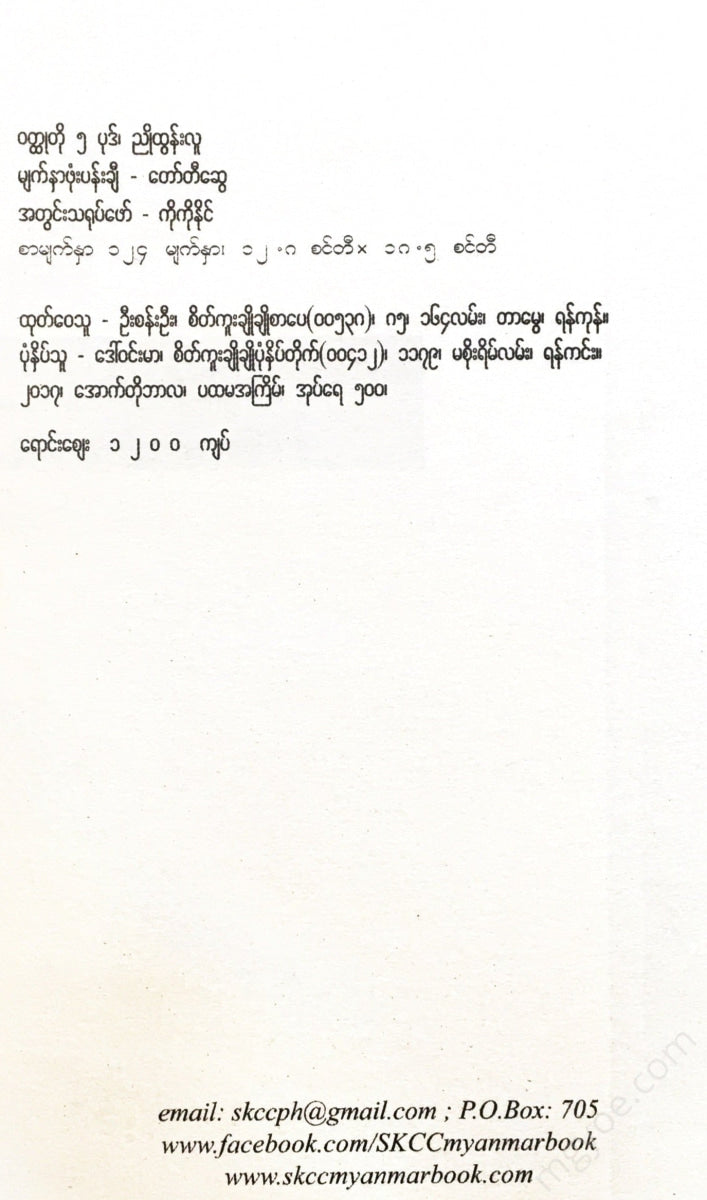 ဝတ္ထုတို ၅ ပုဒ်၊ ညိုထွန်းလူ
မျက်နှာဖုံးပန်းချီ - တော်တီဆွေ
အတွင်းသရုပ်ဖော် - ကိုကိုနိုင်
စာမျက်နှာ ၁၂၄ မျက်နှာ၊ ၁၂.၈ စင်တီ× ၁၈.၅ စင်တီ
ထုတ်ဝေသူ - ဦးစန်းဦး၊ စိတ်ကူးချိုချိုစာပေ(၀၀၅၃၈)၊ ဂ၅၊ ၁၆၄လမ်း၊ တာမွေ၊ ရန်ကုန်။
ပုံနှိပ်သူ - ဒေါ်ဝင်းမာ၊ စိတ်ကူးချိုချိုပုံနှိပ်တိုက်(၀၀၄၁၂)၊ ၁၁၇၉၊ မစိုးရိမ်လမ်း၊ ရန်ကင်း။
၂၀၁၇၊ အောက်တိုဘာလ၊ ပထမအကြိမ်၊ အုပ်ရေ ၅၀၀၊
ရောင်းဈေး ၁ ၂ ၀ ၀ ကျပ်
email: skccph@gmail.com ; P.O.Box: 705
www.facebook.com/SKCCmyanmarbook
www.skccmyanmarbook.com